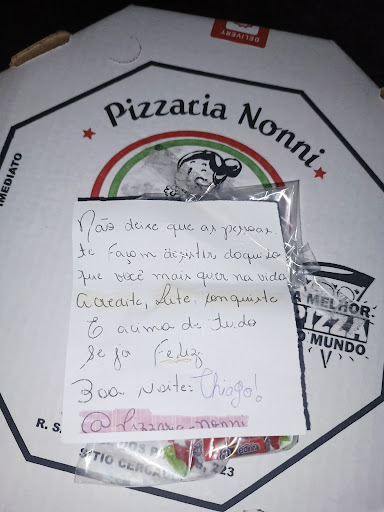 DELIVERY
Pizzaria Nonni
IMEDIATO
Não deixe que as pessoas
te façam desistir daquilo
que você mais quer na vida
Acredite, Lute, conquiste
E acima de tudo
Seja Feliz
Boa Noite: Thiago!
@Pizzaria-nonni
A MELHOR
PIZZA
DO MUNDO
R. S
SÍTIO CERCADO
223